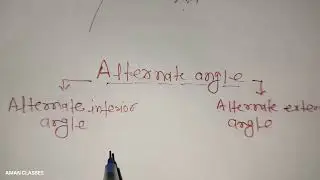 Alternate angle
Alternate interior
angle
Alternate exter
angle
AMAN CLASSES